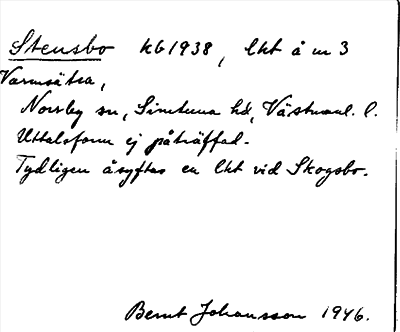 Stensbo KB 1938, lht å nr 3
Varmsätra,
Norrby sn, Simtuna hd, Västmanl. l.
Uttalsform ej påträffad.
Tydligen åsyftas en lht vid Skogsbo.
Bernt Johansson 1946.